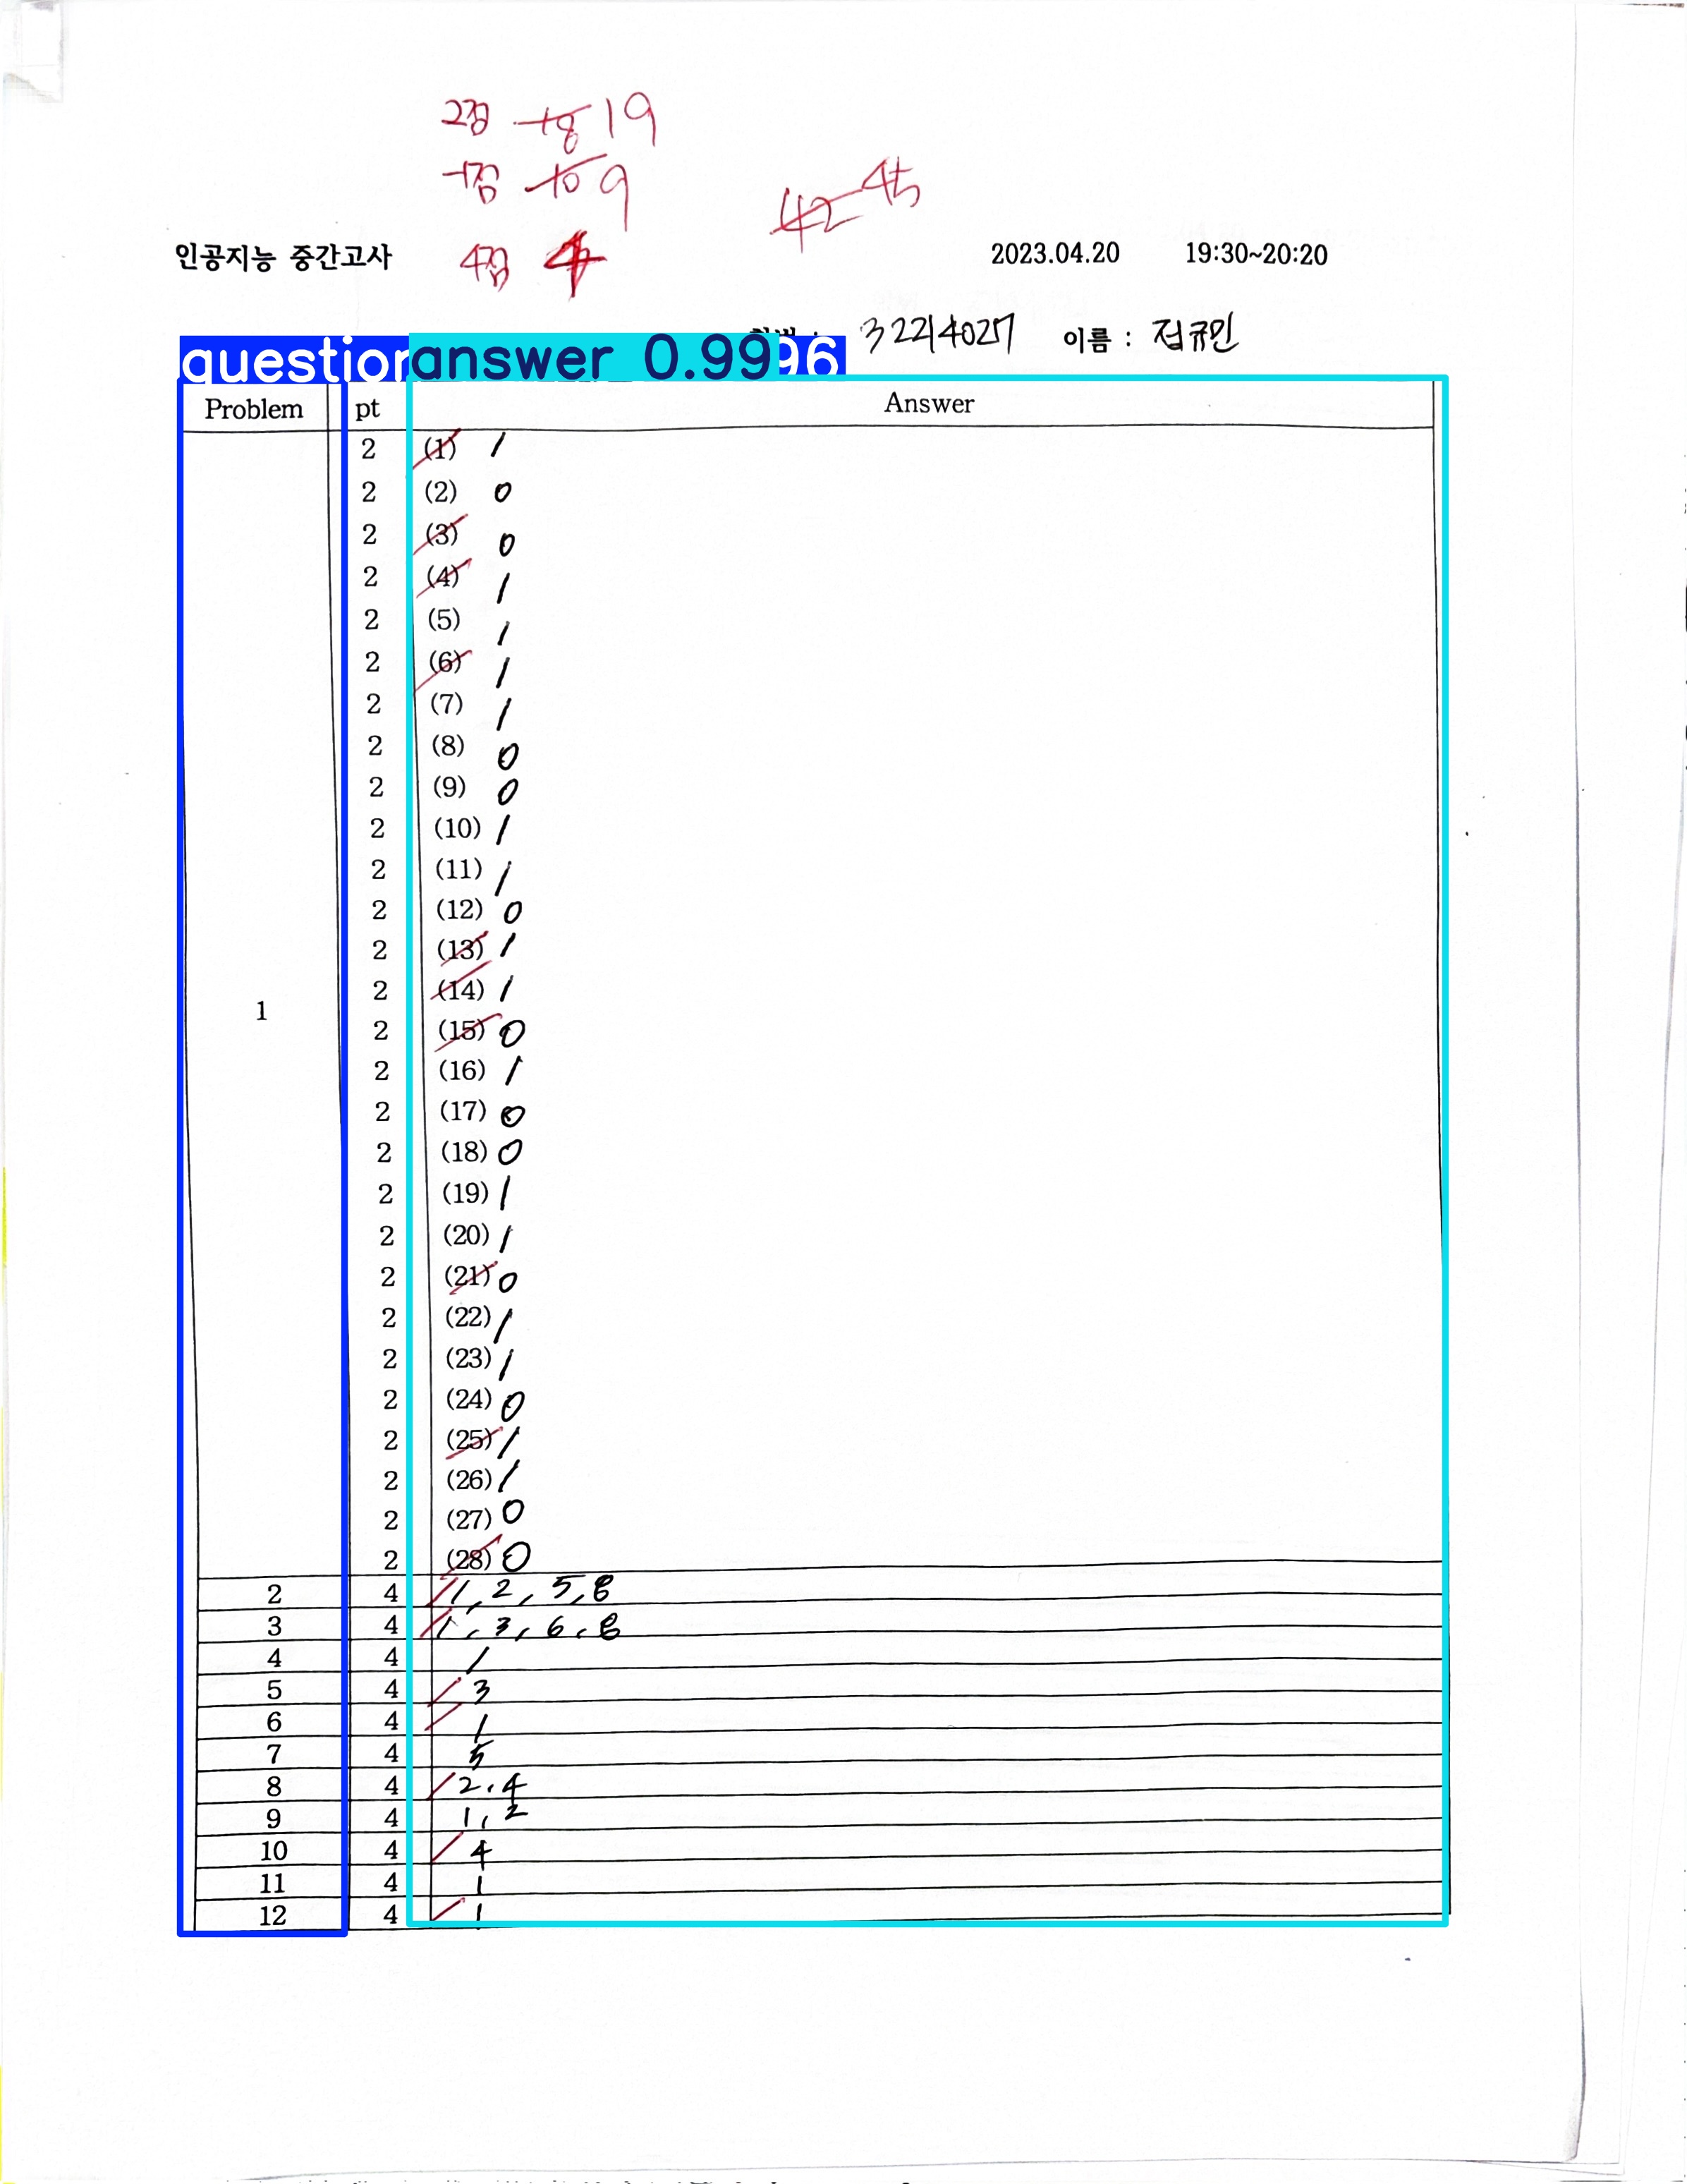 2점 +8 19
-1점 +0 9
42 45
4점 4
인공지능 중간고사 2023.04.20 19:30~20:20
32214027 이름 : 정규민
question answer 0.99 96
Problem pt Answer
2 (1) 1
2 (2) 0
2 (3) 0
2 (4) 1
2 (5) 1
2 (6) 1
2 (7) 1
2 (8) 0
2 (9) 0
2 (10) 1
2 (11) 1
2 (12) 0
2 (13) 1
2 (14) 1
1
2 (15) 0
2 (16) 1
2 (17) 0
2 (18) 0
2 (19) 1
2 (20) 1
2 (21) 0
2 (22) 1
2 (23) 1
2 (24) 0
2 (25) 1
2 (26) 1
2 (27) 0
2 (28) 0
2 4 1, 2, 5, 8
3 4 1, 3, 6, 8
4 4 1
5 4 3
6 4 1
7 4 5
8 4 2, 4
9 4 1, 2
10 4 4
11 4 1
12 4 1